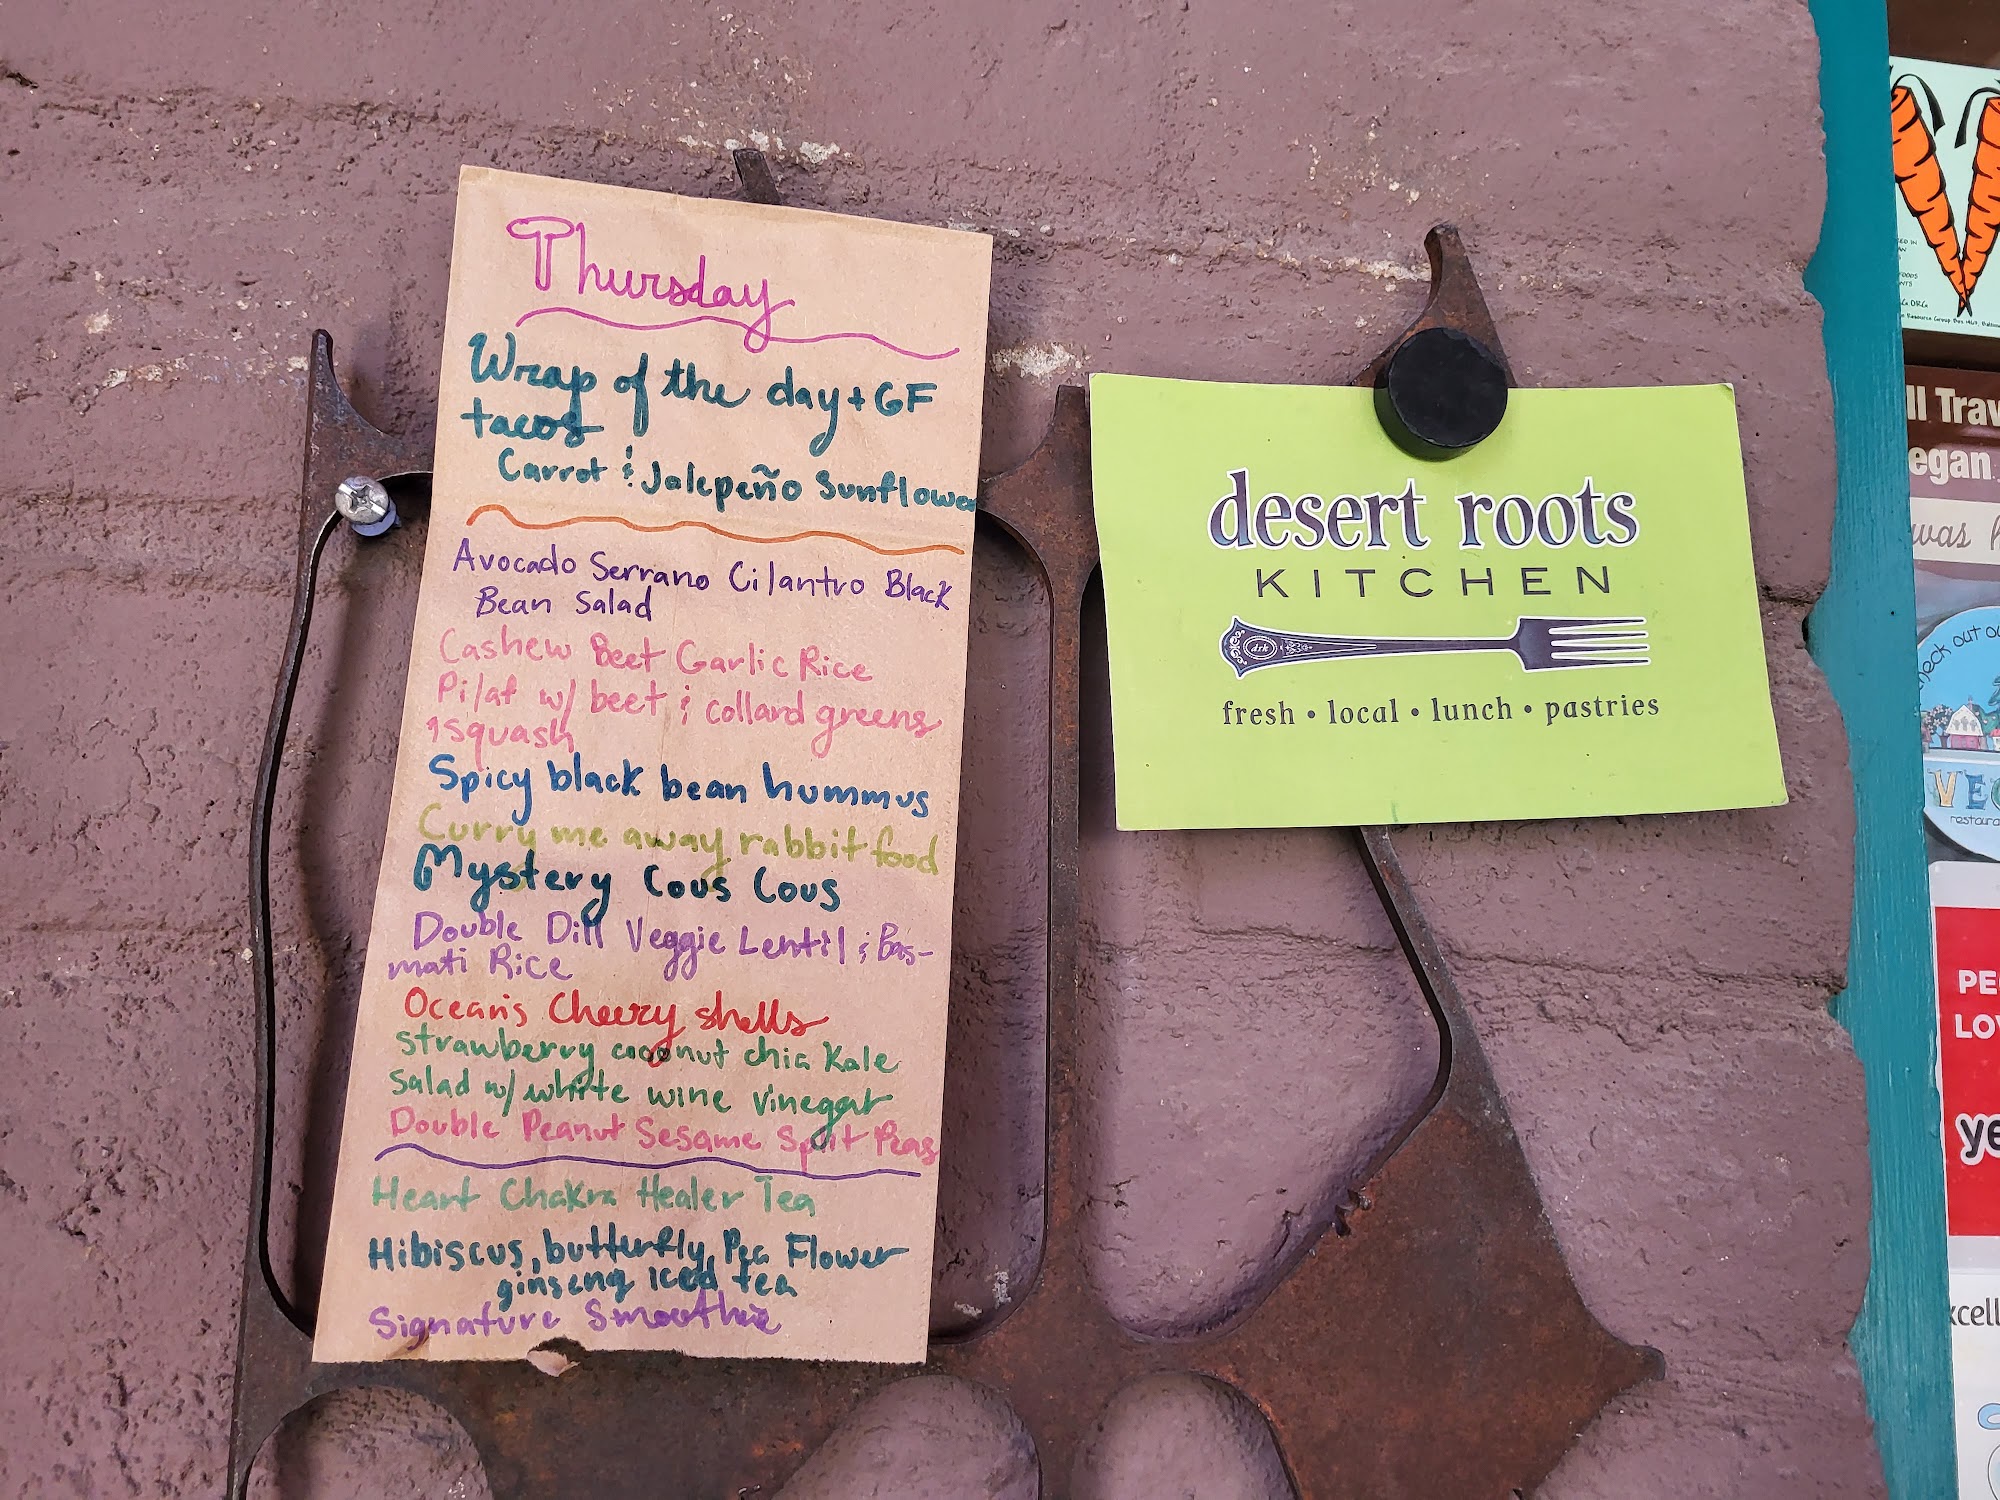 Thursday
Wrap of the day + GF
tacos
Carrot & Jalepeño Sunflower
Avocado Serrano Cilantro Black
Bean Salad
Cashew Beet Garlic Rice
Pilaf w/ beet & collard greens
1 squash
Spicy black bean hummus
Curry me away rabbit food
Mystery Cous Cous
Double Dill Veggie Lentil & Bas-
mati Rice
Ocean's Cheezy shells
strawberry coconut chia Kale
Salad w/ white wine vinegar
Double Peanut Sesame Split Peas
Heart Chakra Healer Tea
Hibiscus, butterfly, Pea Flower
ginseng iced tea
Signature Smoothie
desert roots
KITCHEN
drk
fresh • local • lunch • pastries
ll Trav
egan
was
check out ou
VE
restaura
PE
LO
ye
xcell